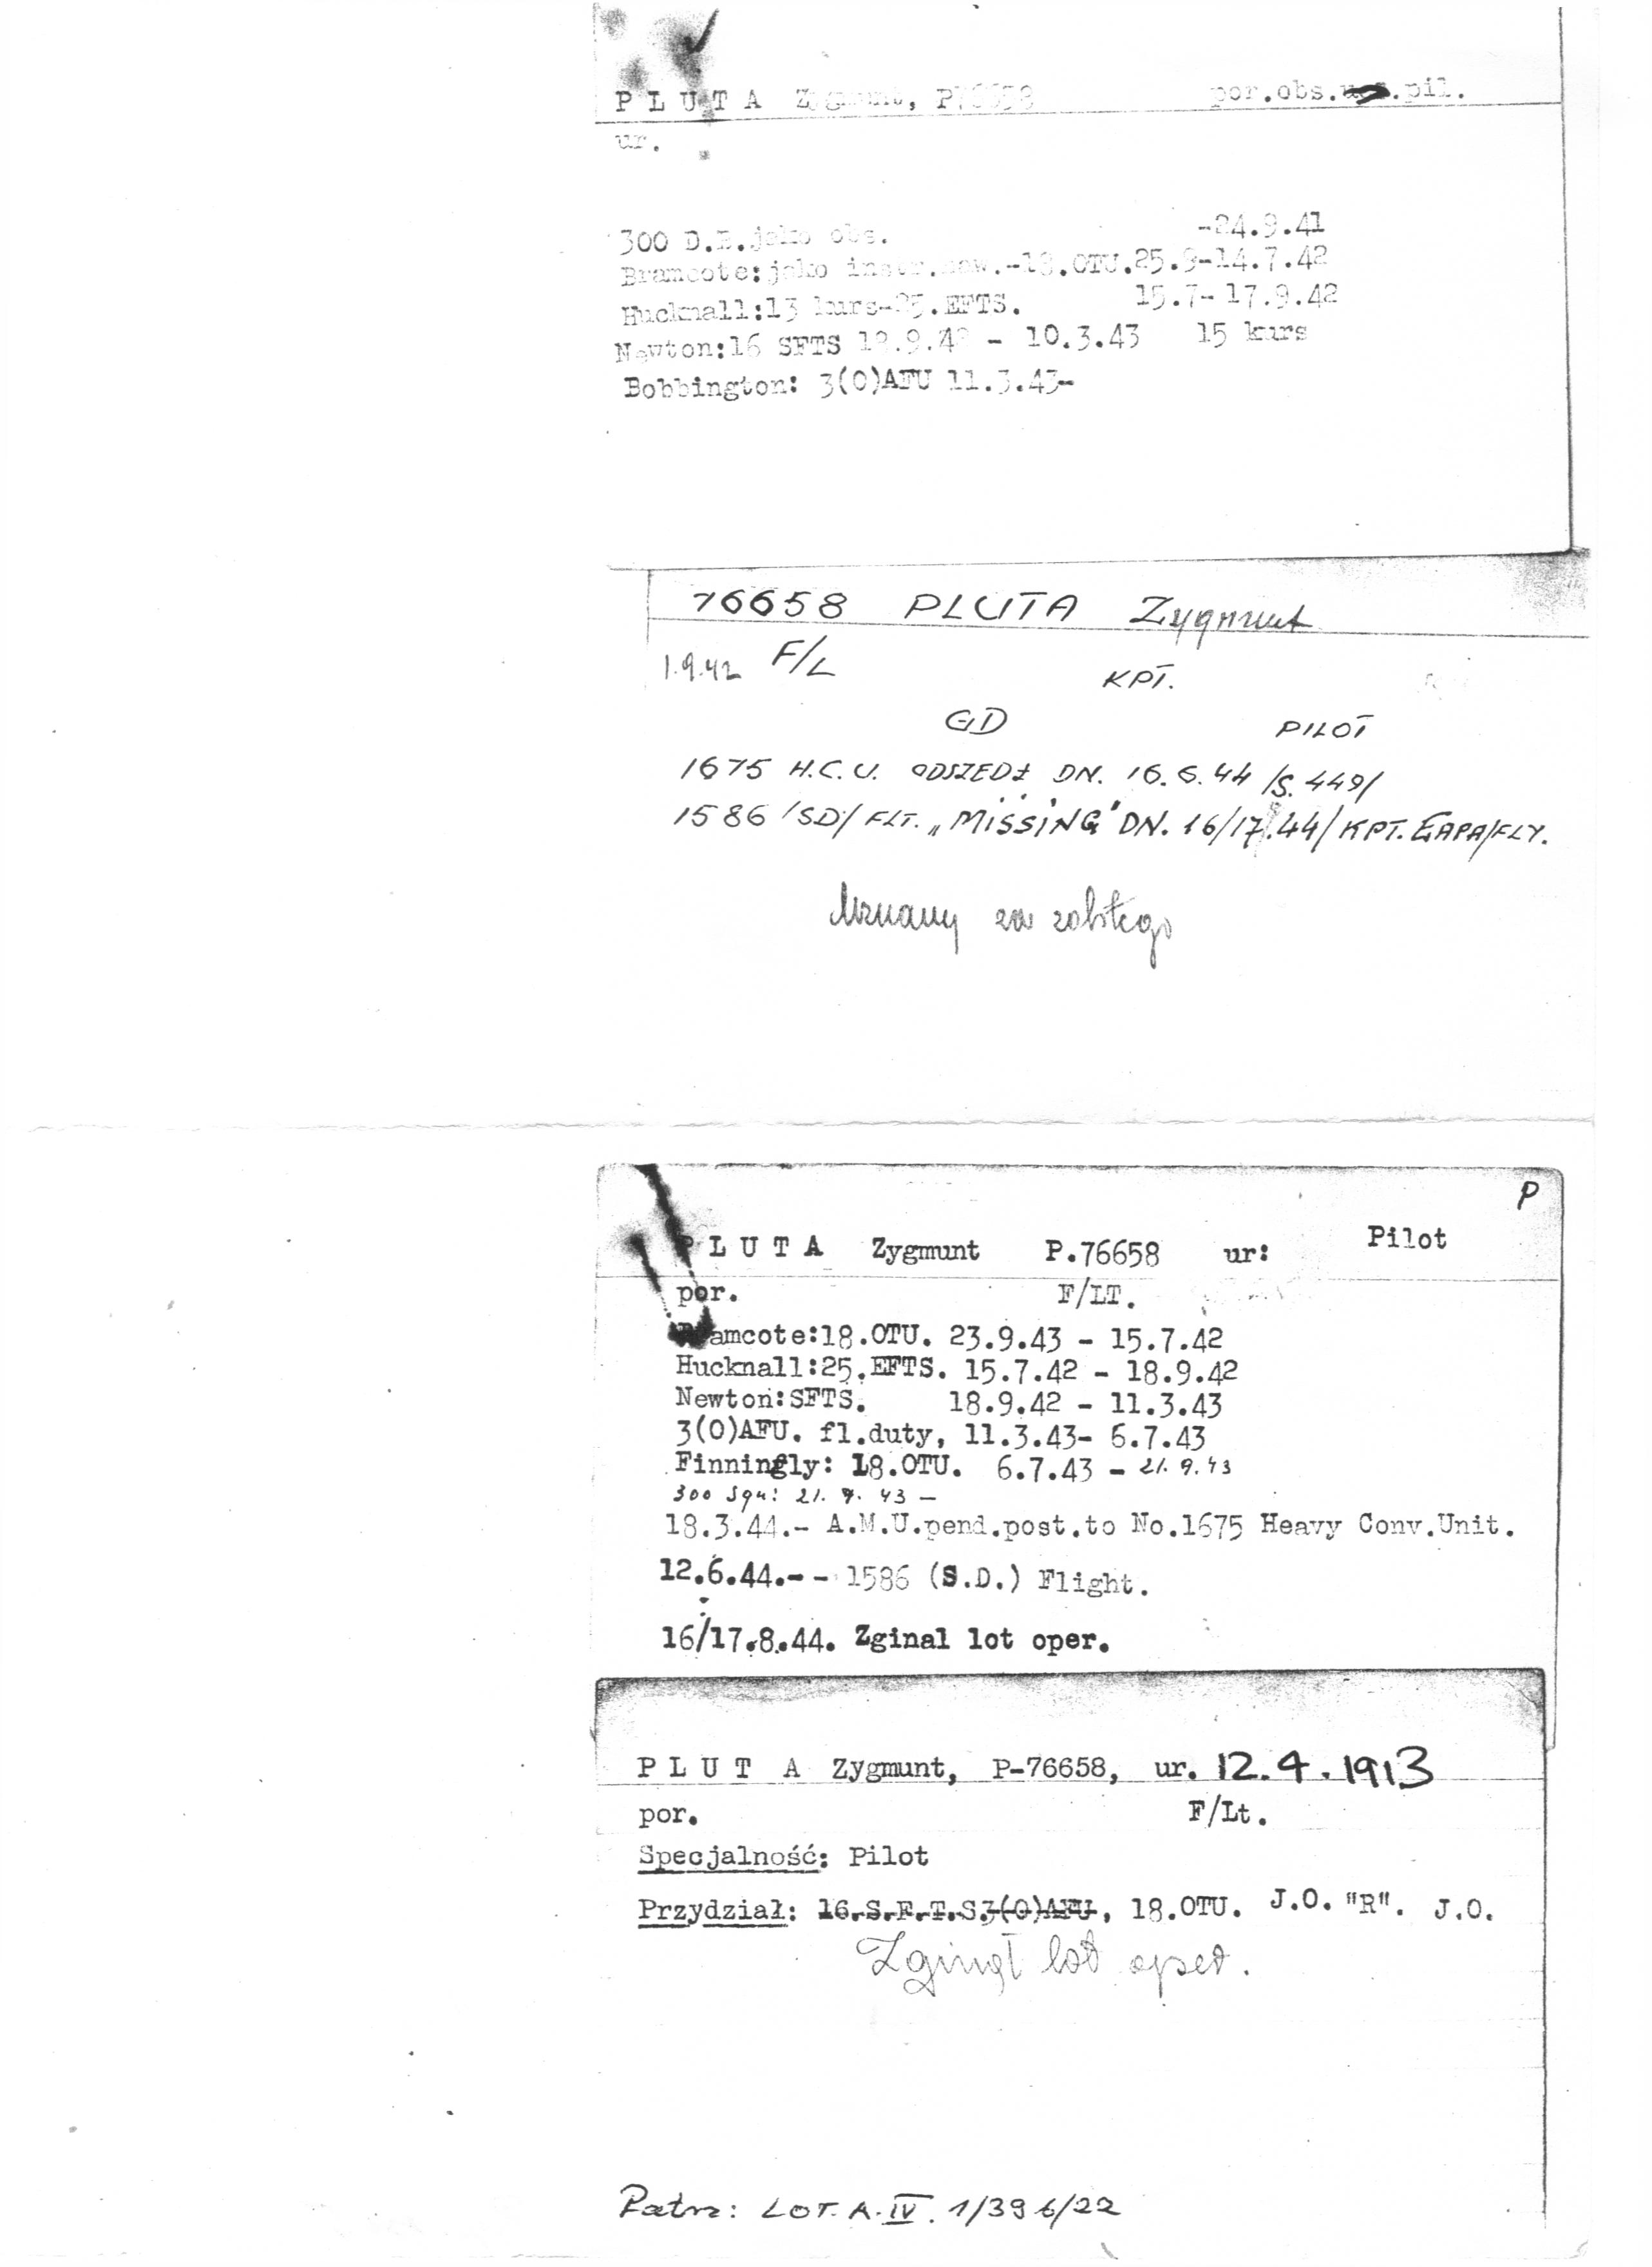 P L U T A Zygmunt, P76658 por.obs. .pil.
ur.
300 D.B.jako obs. -24.9.41
Bramcote:jako instr.naw.-18.OTU.25.9-14.7.42
Hucknall:13 kurs-25.EFTS. 15.7- 17.9.42
Newton:16 SFTS 18.9.42 - 10.3.43 15 kurs
Bobbington: 3(O)AFU 11.3.43-
76658 PLUTA Zygmunt
1.9.42 F/L KPT.
GD PILOT
1675 H.C.U. ODSZEDŁ DN. 16.6.44 /S.449/
1586 /SD/ FLT. „MISSING" DN. 16/17.8.44/ KPT. ŁAPA/FLY.
Uznany za zabitego
P
P L U T A Zygmunt P.76658 ur: Pilot
por. F/LT.
Bramcote:18.OTU. 23.9.43 - 15.7.42
Hucknall:25.EFTS. 15.7.42 - 18.9.42
Newton:SFTS. 18.9.42 - 11.3.43
3(O)AFU. fl.duty, 11.3.43- 6.7.43
Finningly: 18.OTU. 6.7.43 - 21.9.43
300 Sqn: 21.9.43 -
18.3.44.- A.M.U.pend.post.to No.1675 Heavy Conv.Unit.
12.6.44.-- 1586 (S.D.) Flight.
16/17.8.44. Zginal lot oper.
P L U T A Zygmunt, P-76658, ur. 12.4.1913
por. F/Lt.
Specjalność: Pilot
Przydział: 16.S.F.T.S.3(O)AFU, 18.OTU. J.O. "R". J.O.
Zginął lot oper.
Patrz: LOT.A.IV. 1/396/22